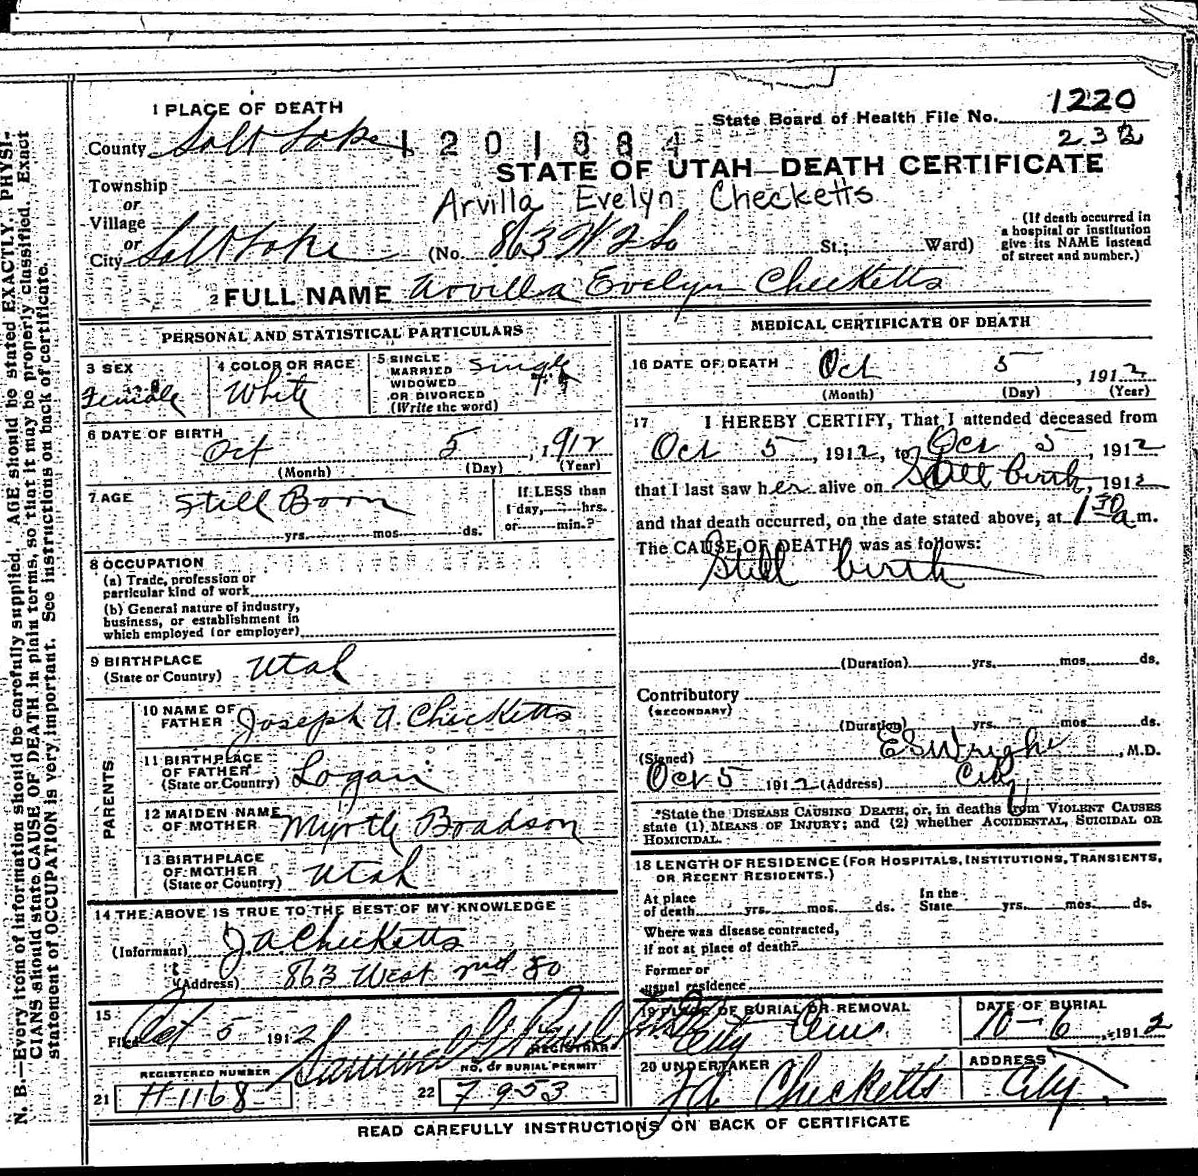 1 PLACE OF DEATH
State Board of Health File No. 1220
County Salt Lake 1201884
STATE OF UTAH—DEATH CERTIFICATE
Township
or
Arvilla Evelyn Checketts
Village
or
City Salt Lake (No. 863 W 2 So St.; Ward)
(If death occurred in a hospital or institution give its NAME instead of street and number.)
2 FULL NAME Arvilla Evelyn Checketts
PERSONAL AND STATISTICAL PARTICULARS
3 SEX Female
4 COLOR OR RACE White
5 SINGLE MARRIED WIDOWED OR DIVORCED (Write the word) Single
6 DATE OF BIRTH Oct 5, 1912
(Month) (Day) (Year)
7 AGE Still Born
yrs. mos. ds.
If LESS than
1 day, hrs.
or min.?
8 OCCUPATION
(a) Trade, profession or
particular kind of work
(b) General nature of industry,
business, or establishment in
which employed (or employer)
9 BIRTHPLACE
(State or Country) Utah
PARENTS
10 NAME OF FATHER Joseph A. Checketts
11 BIRTHPLACE OF FATHER (State or Country) Logan
12 MAIDEN NAME OF MOTHER Myrtle Boadson
13 BIRTHPLACE OF MOTHER (State or Country) Utah
14 THE ABOVE IS TRUE TO THE BEST OF MY KNOWLEDGE
(Informant) J. A. Checketts
(Address) 863 West 2nd So
15
Filed Oct 5 1912
REGISTRAR
REGISTERED NUMBER
21 H 1168
NO. OF BURIAL PERMIT
22 7953
MEDICAL CERTIFICATE OF DEATH
16 DATE OF DEATH Oct 5, 1912
(Month) (Day) (Year)
17 I HEREBY CERTIFY, That I attended deceased from
Oct 5, 1912, to Oct 5, 1912
that I last saw her alive on Still birth, 1912
and that death occurred, on the date stated above, at 1 30 a m.
The CAUSE OF DEATH was as follows:
Still birth
(Duration) yrs. mos. ds.
Contributory
(SECONDARY)
(Duration) yrs. mos. ds.
(Signed) E S Wright, M.D.
Oct 5 1912 (Address) City
*State the DISEASE CAUSING DEATH, or, in deaths from VIOLENT CAUSES
state (1) MEANS OF INJURY; and (2) whether ACCIDENTAL, SUICIDAL OR
HOMICIDAL.
18 LENGTH OF RESIDENCE (FOR HOSPITALS, INSTITUTIONS, TRANSIENTS,
OR RECENT RESIDENTS.)
At place of death yrs. mos. ds. In the State yrs. mos. ds.
Where was disease contracted,
if not at place of death?
Former or
usual residence
19 PLACE OF BURIAL OR REMOVAL City Cem.
DATE OF BURIAL 10-6, 1912
20 UNDERTAKER J A Checketts
ADDRESS City
READ CAREFULLY INSTRUCTIONS ON BACK OF CERTIFICATE
N. B.—Every item of information should be carefully supplied. AGE should be stated EXACTLY. PHYSI-
CIANS should state CAUSE OF DEATH in plain terms, so that it may be properly classified. Exact
statement of OCCUPATION is very important. See instructions on back of certificate.